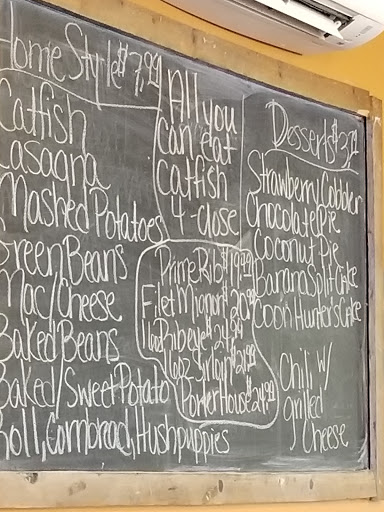 Home Style $7.99
Catfish
Lasagna
Mashed Potatoes
Green Beans
Mac/Cheese
Baked Beans
Baked/Sweet Potato
Roll, Cornbread, Hushpuppies
All you
can eat
catfish
4-close
Prime Rib $19.99
Filet Mignon $20.99
16oz Ribeye $24.99
16oz Sirloin $21.99
Porter House $24.99
Desserts $3.79
Strawberry Cobbler
Chocolate Pie
Coconut Pie
Banana Split Cake
Coon Hunter's Cake
Chili w/
grilled
Cheese